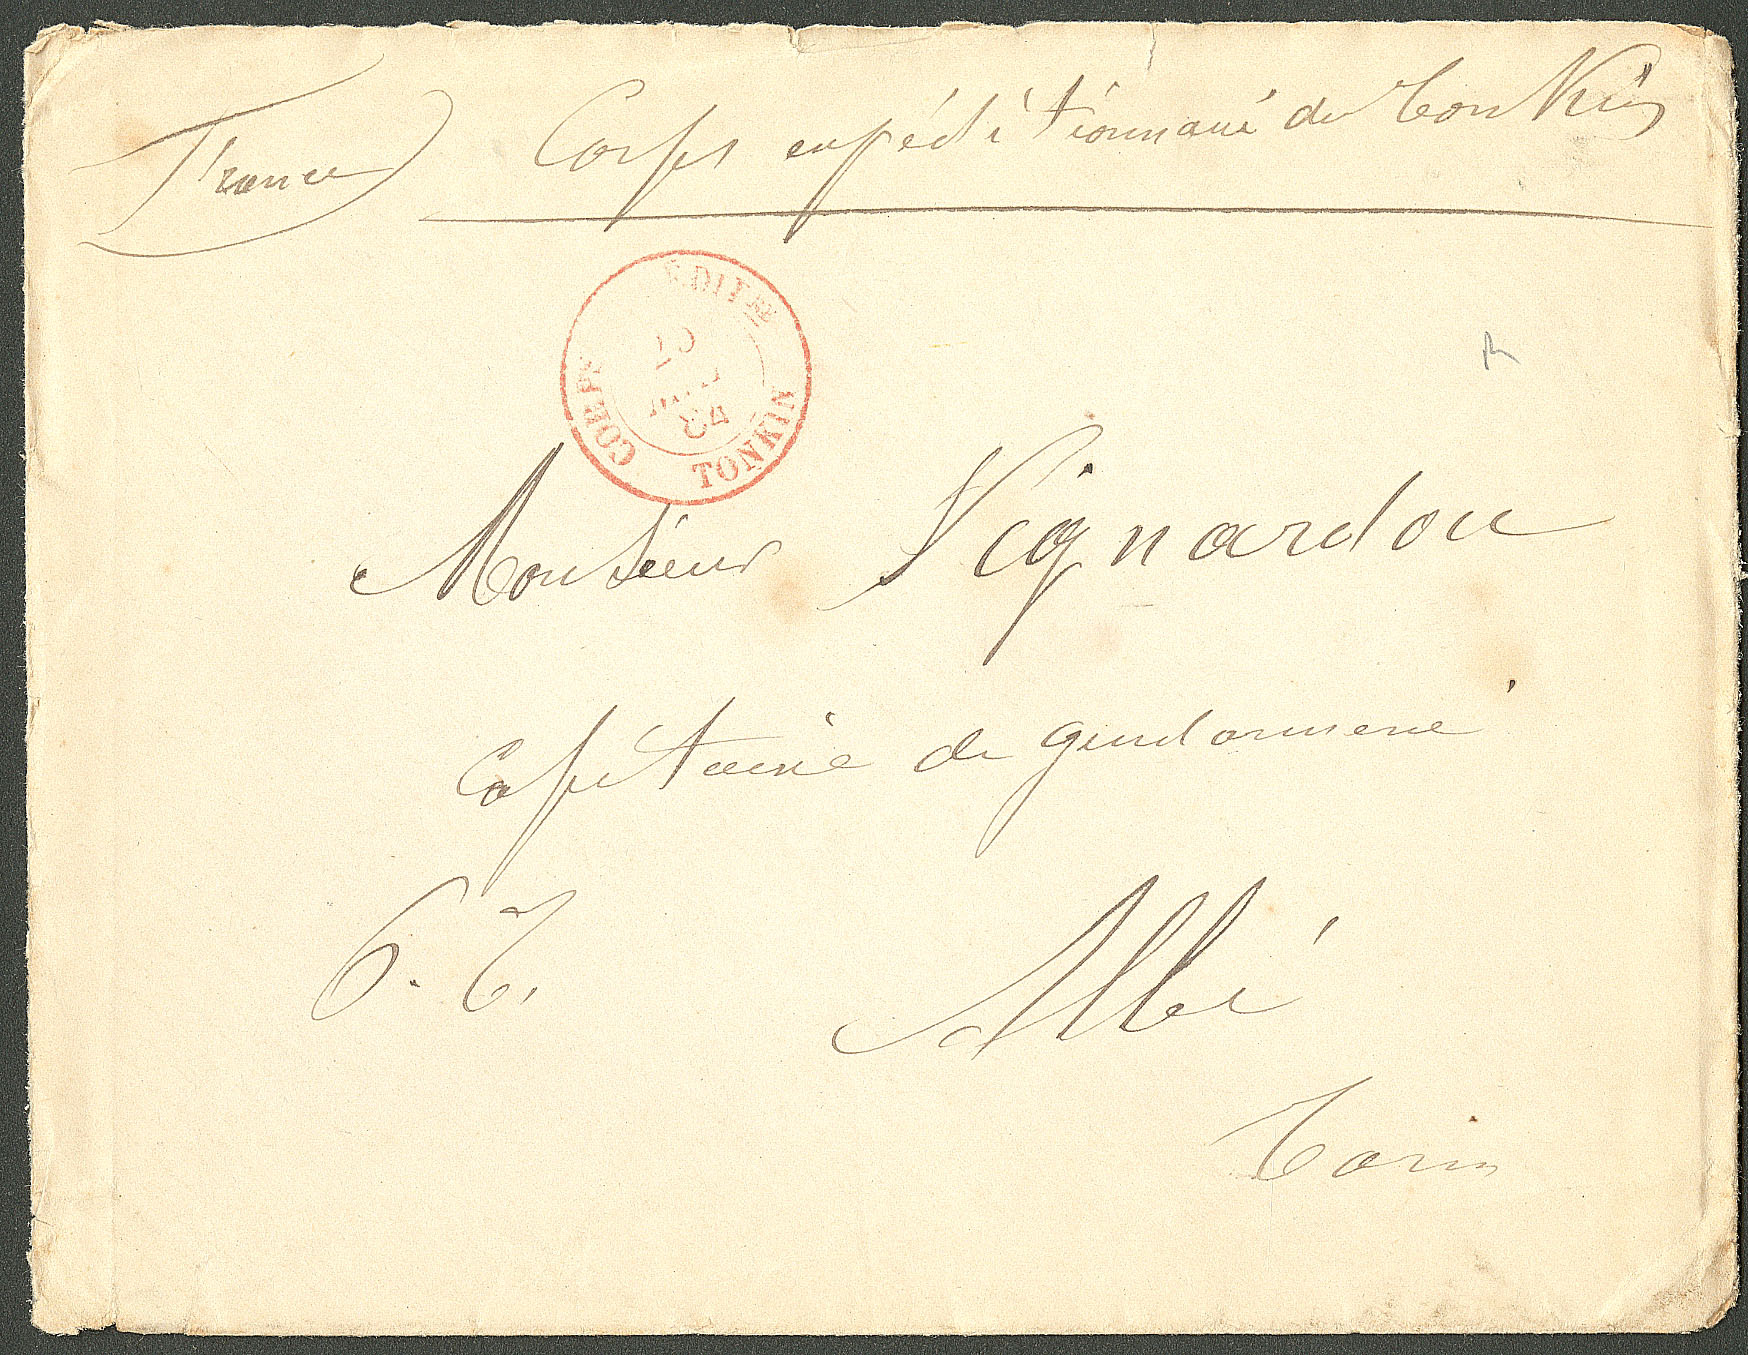 France
Corps expéditionnaire du Tonkin
CORPS EXPÉDITRE
84
TONKIN
Monsieur Vignardou
Capitaine de gendarmerie
Albi
Tarn